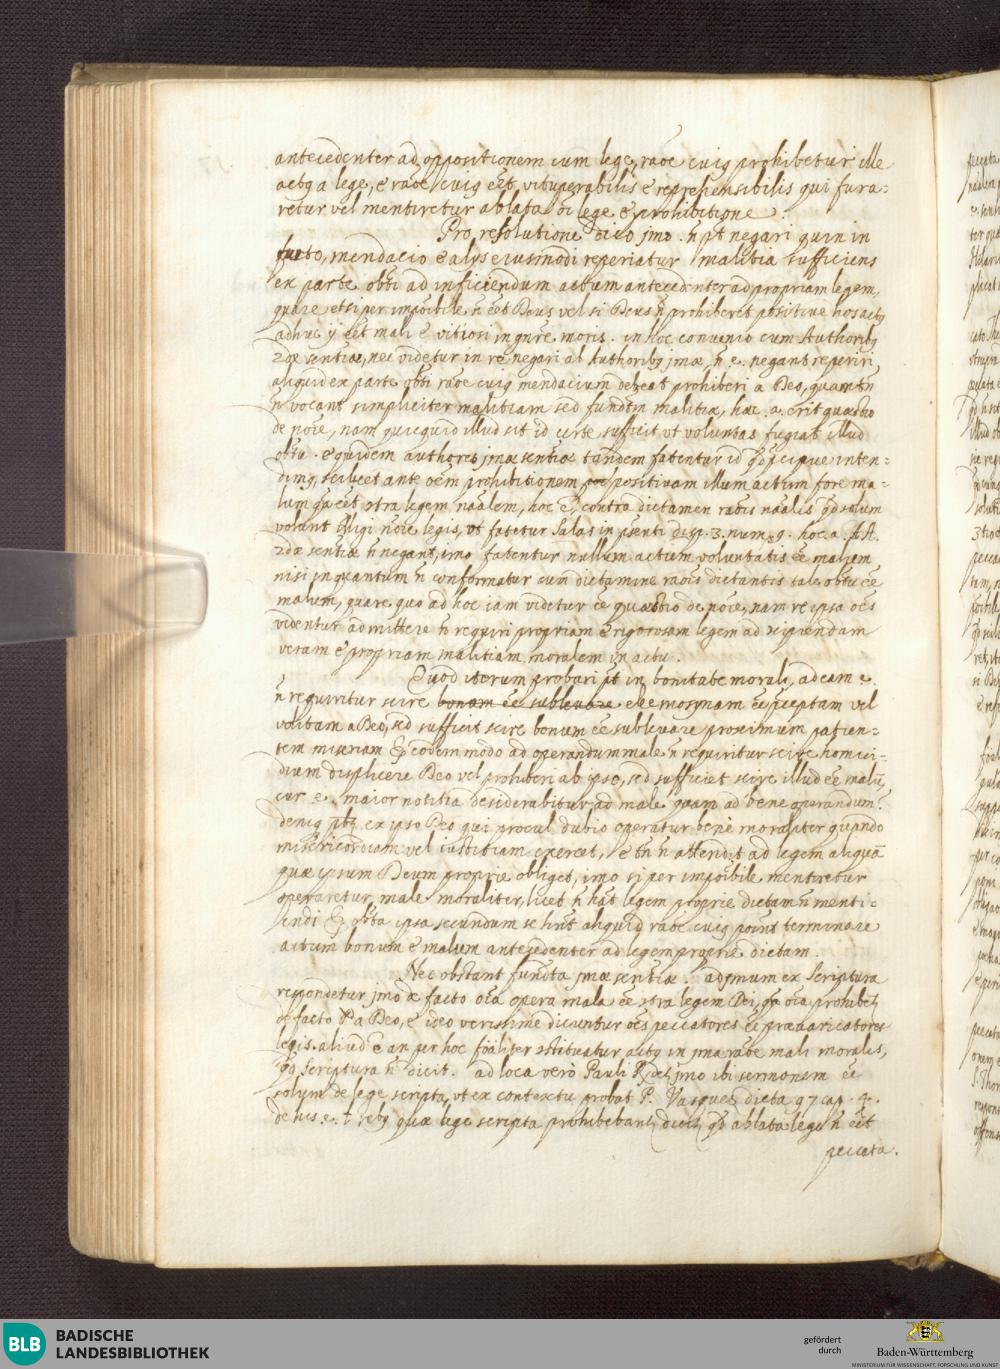 antecedenter ad oppositionem cum lege, raōe cuiq prohibetur ille
actq a lege, e raōe cuiq eēt vituperabilis e reprehensibilis qui fura-
retur vel mentiretur ablata oi lege e prohibitione.
Pro resolutione dico jmo. n̄ pt negari quin in
furto, mendacio e alys eiusmodi reperiatur malitia sufficiens
ex parte obti ad inficiendum actum antecedenter ad propriam legem,
quare etsi per impōibile n̄ eēt Deus vel si Deus n̄ prohiberet positive hos actq
adhuc ij eēt mali e vitiosi in gnr̄e moris. in hoc convenio cum Authoribq
2dæ sentiæ, nec videtur in re negari ab Authoribq jmæ, n̄ .e. negant reperiri
aliquid ex parte obti raōe cuiq mendacium debeat prohiberi a Deo, quamtn̄
n̄ vocant simpliciter malitiam sed fundtm malitiæ, hæc .a. erit quæstio
de nōie, nam quicquid illud sit id certe sufficit vt voluntas fugiat illud
obtū. equidem authores jmæ sentiæ tandem fatentur id qd pcipue inten-
dimq, scilicet ante oēm prohibitionem positivam illum actum fore ma-
lum qa eēt ꝯtra legem naālem, hoc ē, contra dictamen raōis naālis qd solum
volunt intelligi nōie legis, vt fatetur Salas in pn̄ti disp. 3. num. 9. hoc .a. Ath.
2dæ sentiæ n̄ negant, imo fatentur nullum actum voluntatis eē malum
nisi in quantum n̄ conformatur cum dictamine raōis dictantis tale obtū eē
malum, quare quo ad hoc iam videtur eē quæstio de nōie, nam re ipsa oēs
videntur admittere n̄ requiri propriam e rigorosam legem ad recipiendam
veram e propriam malitiam moralem in actu.
Quod iterum probari pt in bonitate morali, ad eam .e.
n̄ requiritur scire bonam eē sublevare eleemosynam eē pceptam vel
volitam a Deo, sed sufficit scire bonum eē sublevare proximum patien-
tem miseriam & eodem modo ad operandum male n̄ requiritur scire homici-
dium displicere Deo vel prohiberi ab ipso, sed sufficiet scire illud eē malū,
cur .e. maior notitia desiderabitur ad male quam ad bene operandum?
deniq pbtq ex ipso Deo qui procul dubio operatur bene moraliter quando
misericordiam vel iustitiam exercet, e tn̄ n̄ attendit ad legem aliquā
quæ ipsum Deum proprie obliget, imo si per impōibile mentiretur
operaretur male moraliter, licet n̄ hāt legem proprie dictam n̄ menti-
endi & obta ipsa secundum se hn̄t aliquid raōe cuiq pōint terminare
actum bonum e malum antecedenter ad legem proprie dictam.
Nec obstant fundta jmæ sentiæ. ad pmum ex Scriptura
respondetur jmo de facto oīa opera mala eē ꝯtra legem Dei, qa oīa prohibetq
de facto a Deo, e ideo verissime dicuntur oēs peccatores eē prævaricatores
legis. aliud ē an per hoc foāliter ꝯstituatur actq in pma raōe mali moralis,
qd Scriptura n̄ dicit. ad loca vero Pauli jmo ibi sermonem eē
solum de lege scripta, vt ex contextu probat P. Vasquez dicta 97 cap. 4.
de iis .e. rebq quæ lege scripta prohibebantq dicit qd ablata lege n̄ eēt
peccata.
BLB
BADISCHE
LANDESBIBLIOTHEK
gefördert
durch
Baden-Württemberg
MINISTERIUM FÜR WISSENSCHAFT, FORSCHUNG UND KUNST